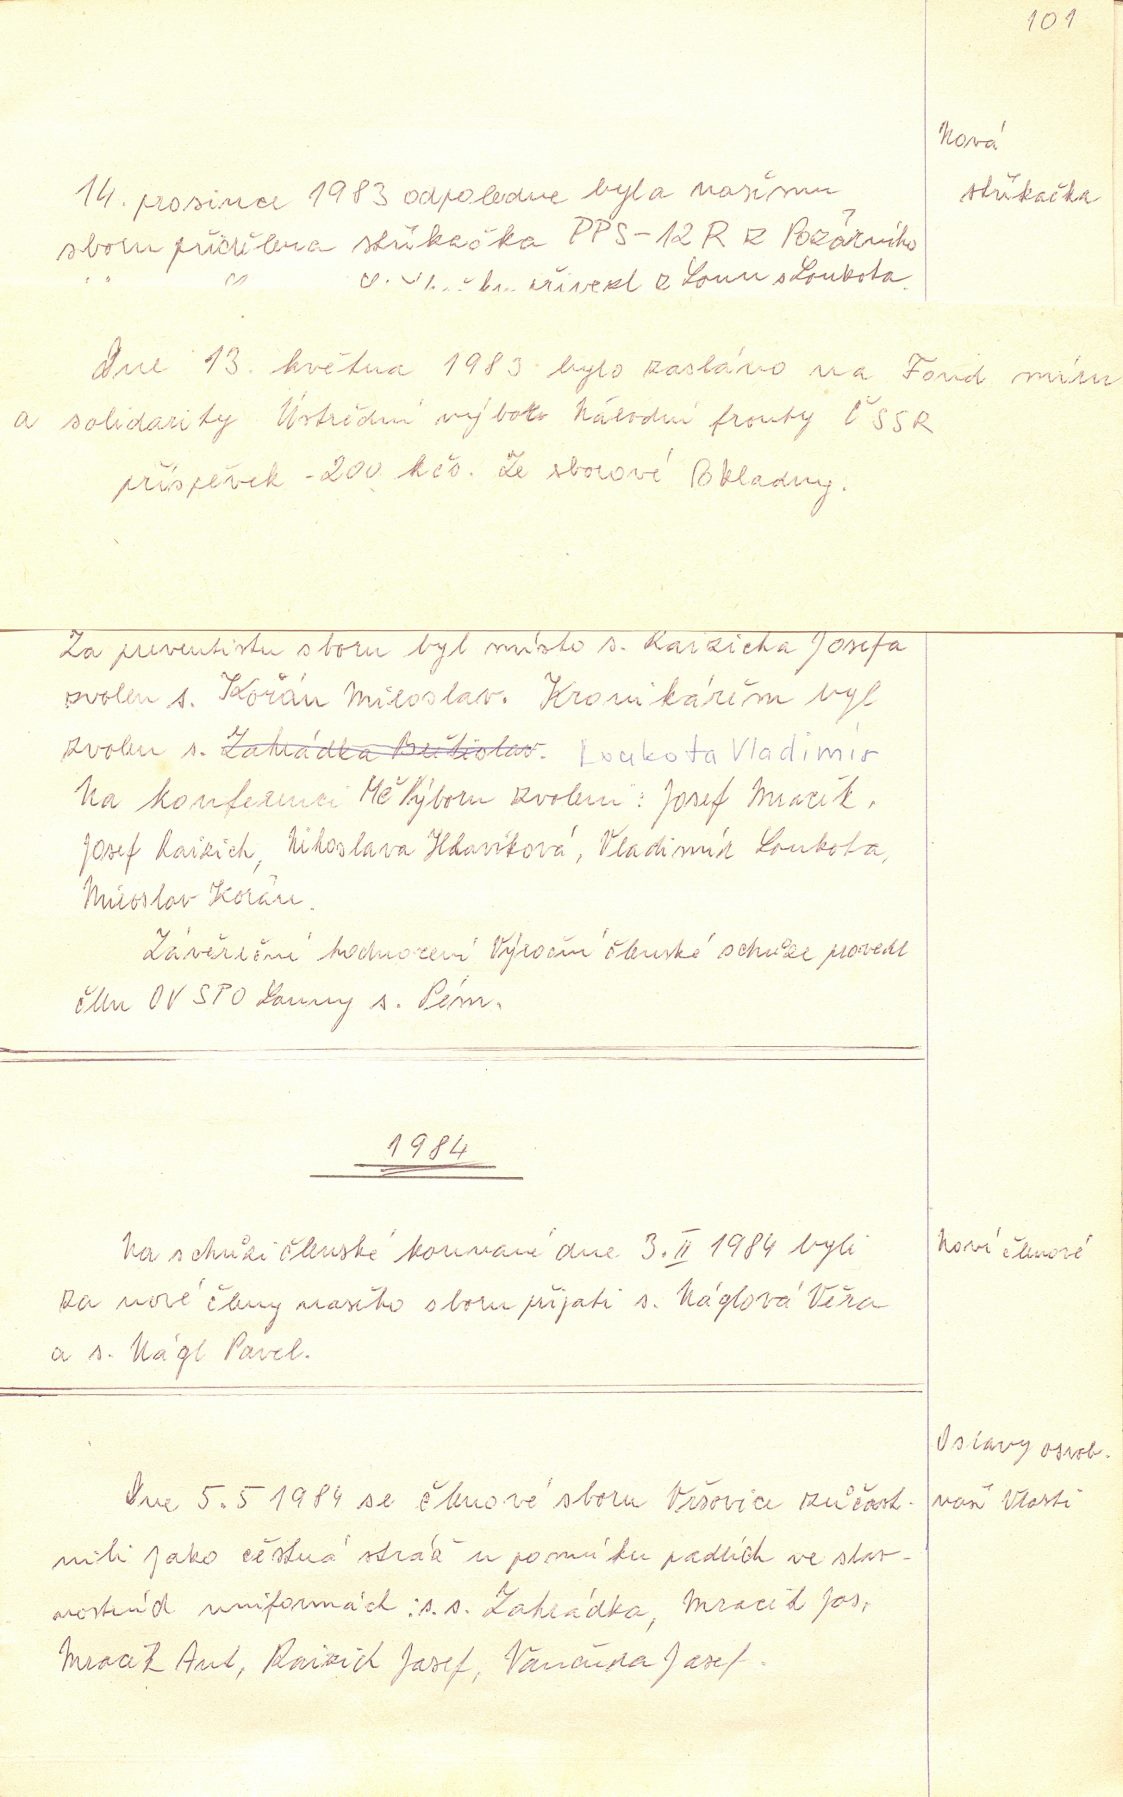 101
Nová
stříkačka
14. prosince 1983 odpoledne byla našemu
sboru přidělena stříkačka PPS-12 R z Požárního
přivezl z Loun s Loukota.
Dne 13. května 1983 bylo zasláno na Fond míru
a solidarity Ústřední výboru Národní fronty ČSSR
příspěvek -200 kčs. Ze sborové Pokladny.
Za preventistu sboru byl místo s. Raizicha Josefa
zvolen s. Kořán Miloslav. Kronikářem byl
zvolen s. Zahrádka Břetislav. Loukota Vladimír
Na konferenci Mě Výboru zvoleni: Josef Mracik,
Josef Raizich, Miloslava Hlavíková, Vladimír Loukota,
Miloslav Korán.
Závěrečné hodnocení Výroční členské schůze provedl
člen OV SPO Louny s. Pém.
1984
Na schůzi členské konané dne 3. II 1984 byli
za nové členy našeho sboru přijati s. Náglová Věra
a s. Nágl Pavel.
Noví členové
Oslavy osvob.
naší Vlasti
Dne 5.5 1984 se členové sboru Vršovice zúčast-
nili jako čestná stráž u pomníku padlích ve slav-
nostních uniformách: s.s. Zahrádka, Mracik Jos,
Mracik Ant, Raizich Josef, Vančura Josef.